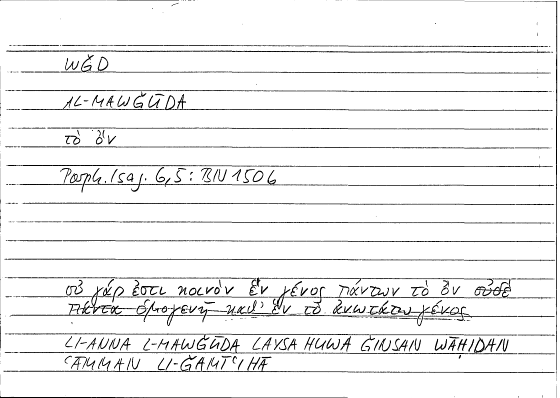 WǦD
AL-MAWǦŪDA
τὸ ὄν
Porph. Isag. 6,5 : BN 150b
οὐ γάρ ἐστι κοινὸν ἓν γένος πάντων τὸ ὂν οὐδὲ
πάντα ὁμογενῆ καθ' ἓν τὸ ἀνωτάτω γένος
LI-ANNA L-MAWǦŪDA LAYSA HUWA ǦINSAN WĀḤIDAN
ʿĀMMAN LI-ǦAMĪʿIHĀ